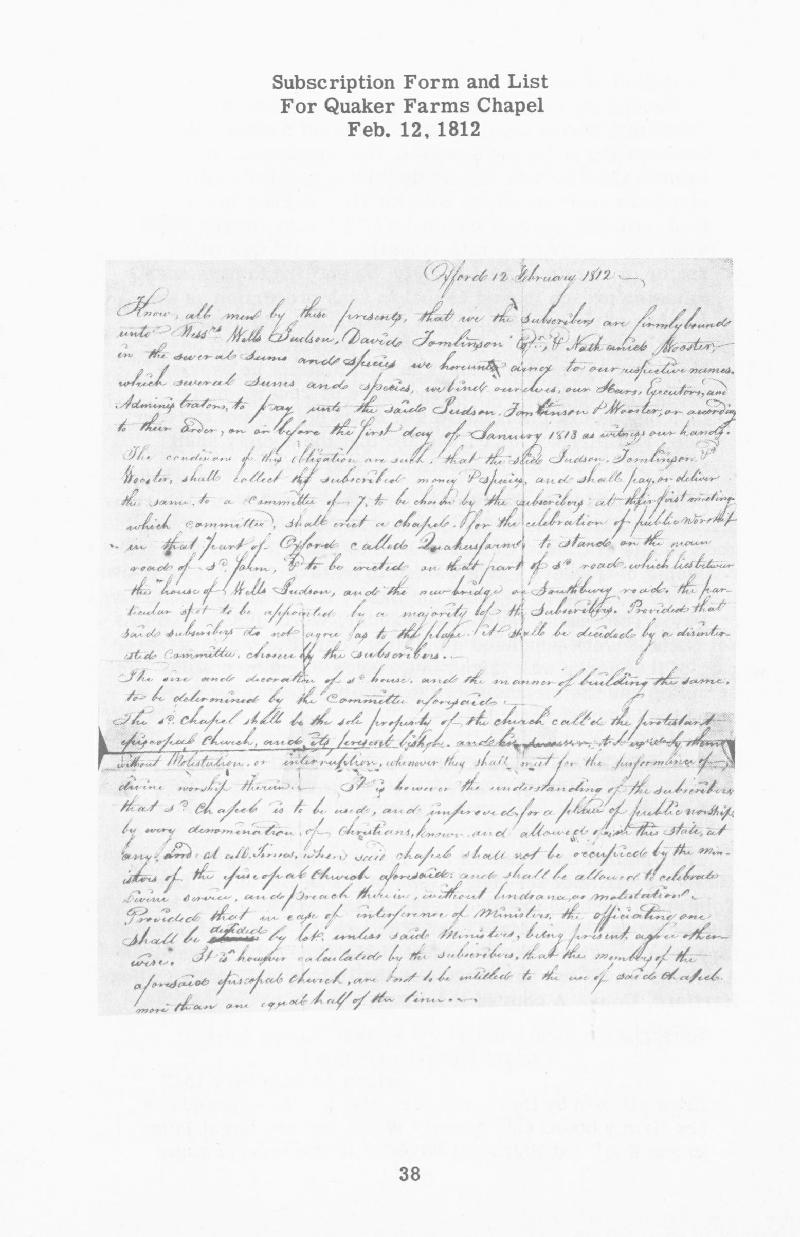 Subscription Form and List
For Quaker Farms Chapel
Feb. 12, 1812
Oxford 12 February 1812
Know, all men by these presents, that we the subscribers are firmly bound
unto Messrs Wells Judson, David Tomlinson Esqr, & Nathaniel Wooster,
in the several sums and species we hereunto annex to our respective names.
which several sums and species, we bind ourselves, our Heirs, Executors, and
Administrators, to pay unto the said Judson, Tomlinson & Wooster, or according
to their order, on or before the first day of January 1813 as witness our hands.
The conditions of this obligation are such, that the said Judson, Tomlinson &
Wooster, shall collect the subscribed money & species, and shall pay, or deliver
the same, to a committee of 7, to be chosen by the subscribers at their first meeting
which committee, shall erect a chapel, for the celebration of public worship
in that part of Oxford called Quakersfarms, to stand on the main
road of sd farm, & to be erected on that part of sd road, which lies between
the house of Wells Judson, and the new bridge on Southbury road. the par-
ticular spot to be appointed by a majority of the Subscribers. Provided that
said subscribers do not agree as to the place, it shall be decided by a disinter-
ested Committee, chosen by the subscribers.
The size and decoration of sd house, and the manner of building the same,
to be determined by the Committee aforesaid.
The sd Chapel shall be the sole property of the church call'd the protestant
episcopal Church, and its present bishop, and his to by them
without Molestation, or interruption, whenever they shall meet for the performance of
divine worship therein. It is however the understanding of the subscribers
that sd Chapel is to be used, and improved, for a place of public worship
by every denomination of Christians, known and allowed of, in this State, at
any and at all Times, when said chapel shall not be occupied by the min-
isters of the episcopal Church aforesaid: and shall be allowed to celebrate
Divine service, and preach therein, without hindrance, or molestation.
Provided that in case of interference of Ministers, the officiating one
shall be decided by lot, unless said Ministers, being present, agree other-
wise. It is however calculated by the subscribers, that the members of the
aforesaid episcopal Church, are not to be intitled to the use of said Chapel
more than one equal half of the time.
38